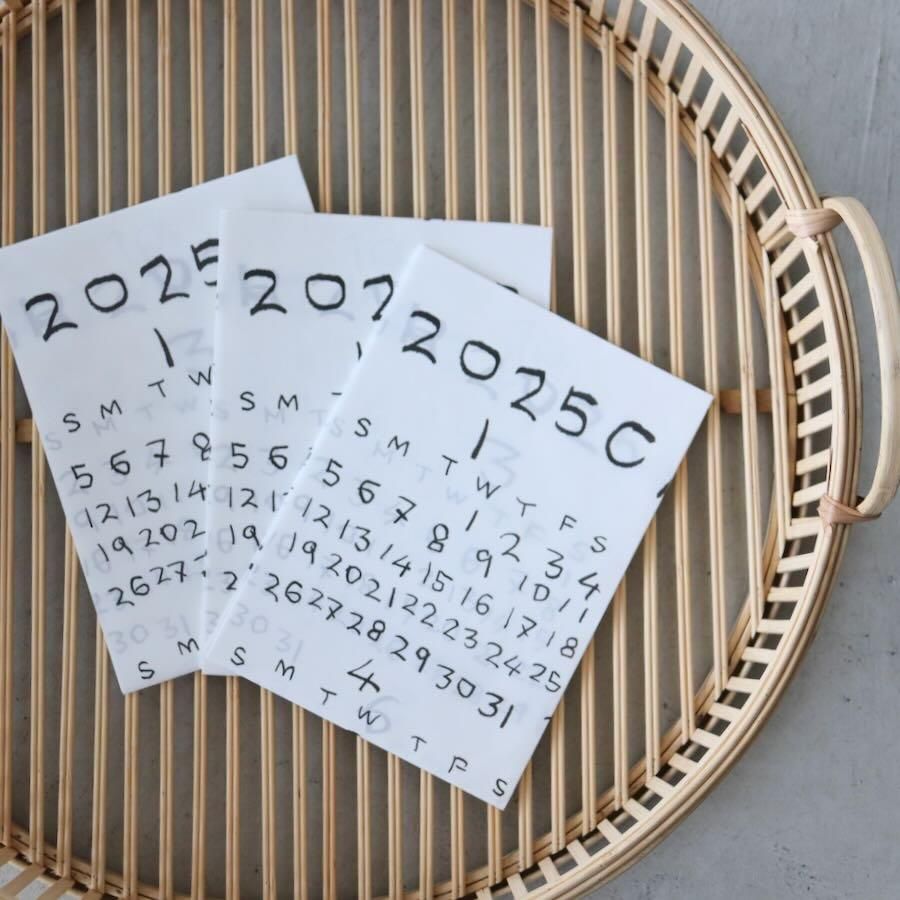 2025
1
S M T W
5 6 7 8
12 13 14
19 20 2
26 27
S M
202
S M
5 6
12 1
19
2
2025C
1
S M T W T F S
1 2 3 4
5 6 7 8 9 10 11
12 13 14 15 16 17 18
19 20 21 22 23 24 25
26 27 28 29 30 31
4
S M T W T F S